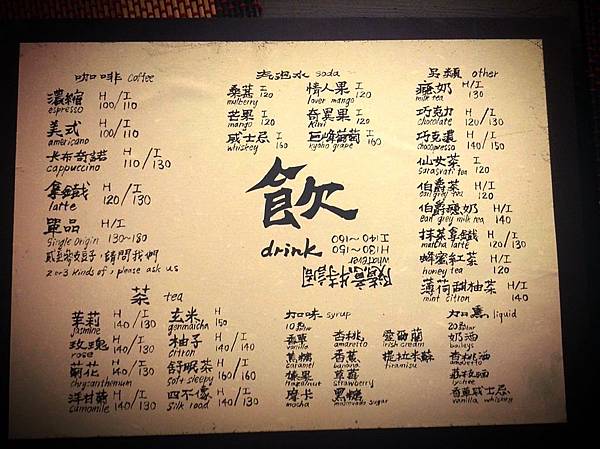 咖啡 coffee
濃縮 H/I
espresso 100/110
美式 H/I
americano 100/110
卡布奇諾 H/I
cappuccino 110/130
拿鐵 H/I
latte 120/130
單品 H/I
single origin 130~180
貳至參支豆子，請問我們
2 or 3 kinds of, please ask us
氣泡水 soda
桑葚 I
mulberry 120
情人果 I
lover mango 120
芒果 I
mango 120
奇異果 I
kiwi 120
威士忌 I
whiskey 160
巨峰葡萄 I
kyoho grape 160
另類 other
癮奶 H/I
milk tea 130
巧克力 H/I
chocolate 120/130
巧克濃 H/I
chocopresso 130/150
仙女茶 I
sarasvati tea 120
伯爵茶 H/I
earl grey tea 120
伯爵癮奶 H/I
earl grey milk tea 140
抹茶拿鐵 H/I
matcha latte 120/130
蜂蜜紅茶 H/I
honey tea 120
薄荷甜柚茶 H/I
mint citron 140
飲
drink
隨意特調
whatever
H:130~150
I:140~160
茶 tea
茉莉 H/I
jasmine 140/130
玫瑰 H/I
rose 140/130
菊花 H/I
chrysanthemum 140/130
洋甘菊 H/I
camomile 140/130
玄米 H
genmaicha 150
柚子 H/I
citron 140/140
舒眠茶 H/I
soft sleepy 160/160
四不像 H/I
silk road 140/140
加味 syrup
10
香草
vanilla
焦糖
caramel
榛果
hazelnut
摩卡
mocha
杏桃
amaretto
香蕉
banana
草莓
strawberry
黑糖
muscovado sugar
愛爾蘭
irish cream
提拉米蘇
tiramisu
加薰 liquid
20
奶酒
baileys
杏桃酒
amaretto
荔枝酒
lychee
香草威士忌
vanilla whiskey